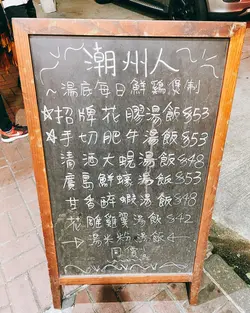 潮州人
~湯底每日鮮鷄煲制
☆招牌花膠湯飯$53
☆手切肥牛湯飯$53
清酒大蜆湯飯$48
廣島鮮蠔湯飯$53
甘香醉蝦湯飯$48
花雕鷄翼湯飯$42
湯米粉湯飯
同價